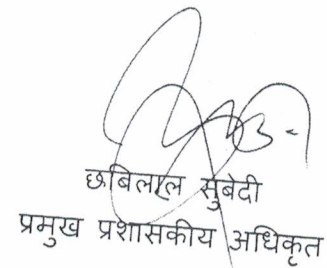 छबिलाल सुबेदी
प्रमुख प्रशासकीय अधिकृत